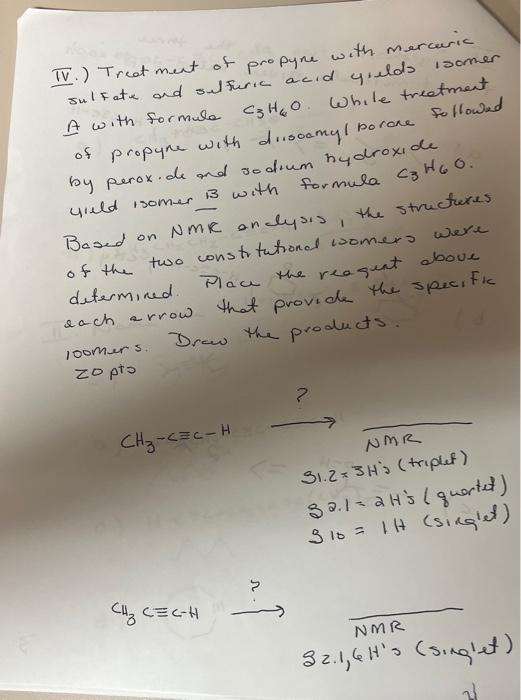 IV.) Treatment of propyne with mercuric
sulfate and sulfuric acid yields isomer
A with formula C3H6O. While treatment
of propyne with diisoamyl borane followed
by peroxide and sodium hydroxide
yield isomer B with formula C3H6O.
Based on NMR analysis, the structures
of the two constitutional isomers were
determined. Place the reagent above
each arrow that provide the specific
isomers. Draw the products.
20 pts
?
CH3-C≡C-H
NMR
δ1.2 = 3H's (triplet)
δ2.1 = 2H's (quartet)
δ10 = 1H (singlet)
?
CH3 C≡C-H
NMR
δ2.1, 6H's (singlet)